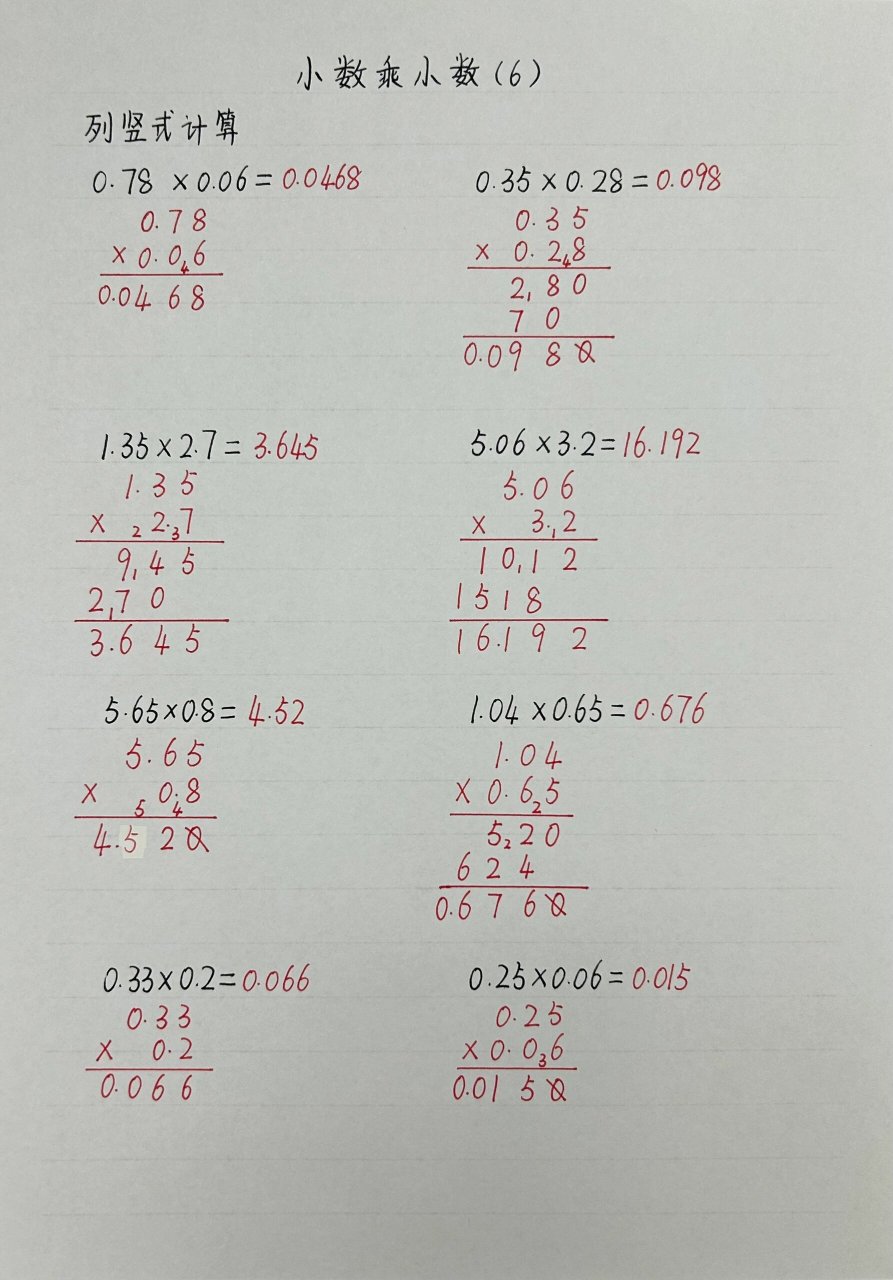 小数乘小数(6)
列竖式计算
0.78 ×0.06=0.0468
0.78
×0.046
0.0468
0.35×0.28=0.098
0.35
× 0.248
2,80
70
0.0980
1.35×2.7=3.645
1.35
× 22.37
9,45
2,70
3.645
5.06×3.2=16.192
5.06
× 3.12
10,12
1518
16.192
5.65×0.8=4.52
5.65
× 50.48
4.520
1.04×0.65=0.676
1.04
×0.625
5220
624
0.6760
0.33×0.2=0.066
0.33
× 0.2
0.066
0.25×0.06=0.015
0.25
×0.036
0.0150